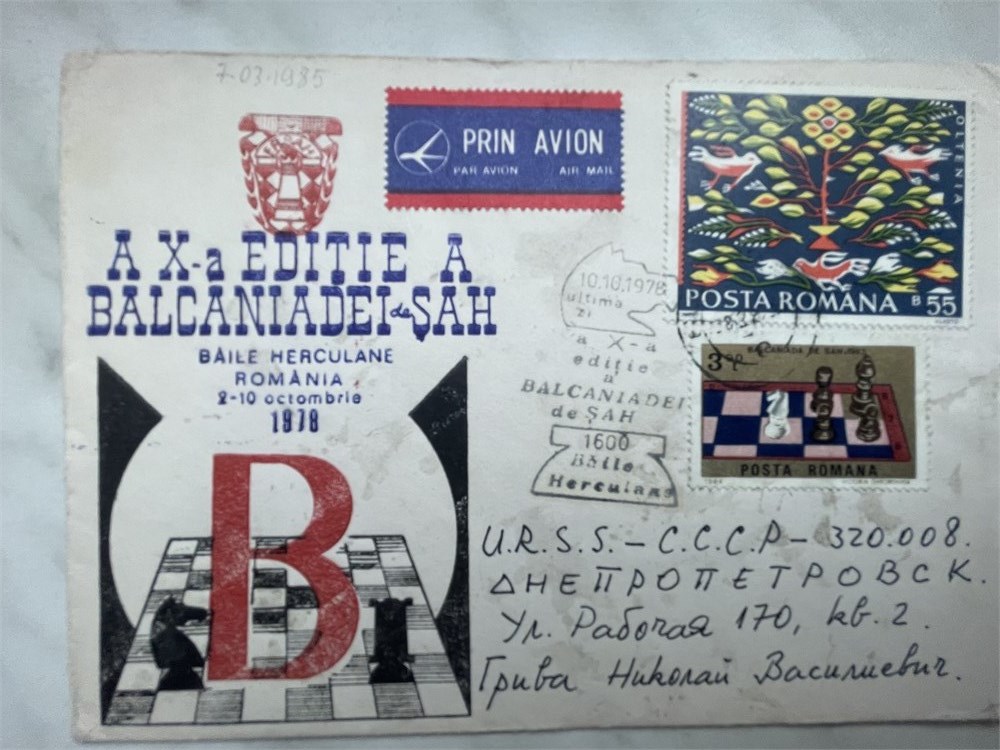 7.03.1985
PRIN AVION
PAR AVION AIR MAIL
A X-a EDIȚIE A
BALCANIADEI de ȘAH
BĂILE HERCULANE
ROMÂNIA
2-10 octombrie
1978
B
10.10.1978
ultima
zi
a X-a
ediție
a
BALCANIADEI
de ȘAH
1600
Băile
Herculane
OLTENIA
POSTA ROMANA B 55
3
POSTA ROMANA
1984
U.R.S.S. - C.C.C.P - 320.008.
ДНЕПРОПЕТРОВСК.
Ул. Рабочая 170, кв. 2.
Грива Николай Василиевич.